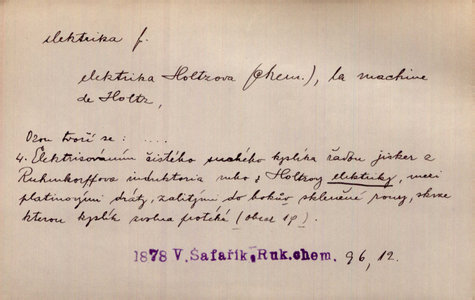 elektrika f.
elektrika Holtzova (chem.), la machine
de Holtz,
Ozon tvoří se: ....
4. Elektrisováním čistého suchého kyslíka řadou jisker z
Ruhmkorffova induktoria nebo z Holtzovy elektriky, mezi
platinovými dráty, zalitými do boků skleněné roury, skrze
kterou kyslík zvolna protéká (obraz 19).
1878 V. Šafařík, Ruk.chem. 96, 12.